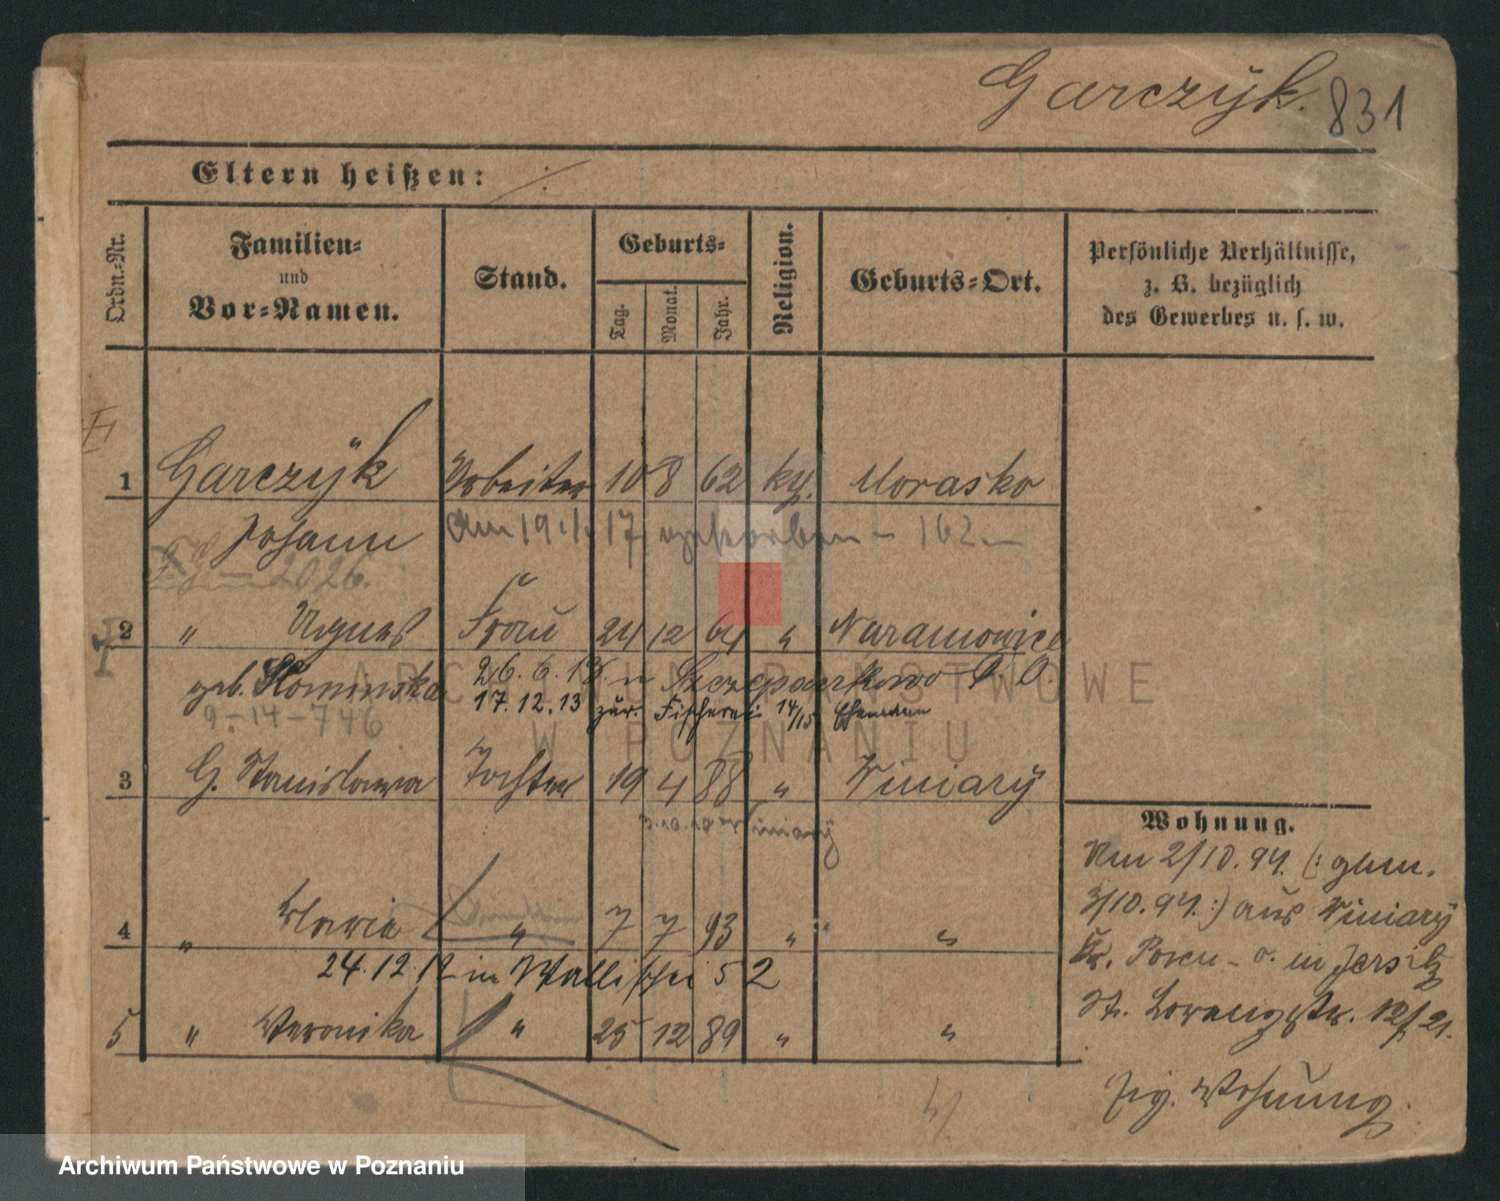 Garczÿk. 831
Eltern heißen:
Ordn.-Nr.
Familien-
und
Vor-Namen.
Stand.
Geburts-
Tag.
Monat.
Jahr.
Religion.
Geburts-Ort.
Persönliche Verhältnisse,
z. B. bezüglich
des Gewerbes u. s. w.
1 Garczÿk Arbeiter 10 8 62 kg. Morasko
Johann am 19.1.17 gestorben - 162
2026.
2 " Agnes Frau 24 12 64 " Naramowice
geb. Slominska 26.6.13. n Szczepankowo P. O.
9-14-746 17.12.13 zur. Fischerei 14/15 Ehemann
3 G. Stanislawa Tochter 19 4 88 " Winiarÿ
3.10.10 Winiarÿ
4 " Maria " 7 7 93 " "
24.12.12 in Wallischei 52
5 " Veronika " 25 12 89 " "
Wohnung.
Am 2/10.94. (: gem.
3/10.94. :) aus Winiarÿ
Kr. Posen - O. in Jersitz
St. Lorenzstr. 12/21.
Zig. Wohnung.
ARCHIWUM PAŃSTWOWE
W POZNANIU
Archiwum Państwowe w Poznaniu